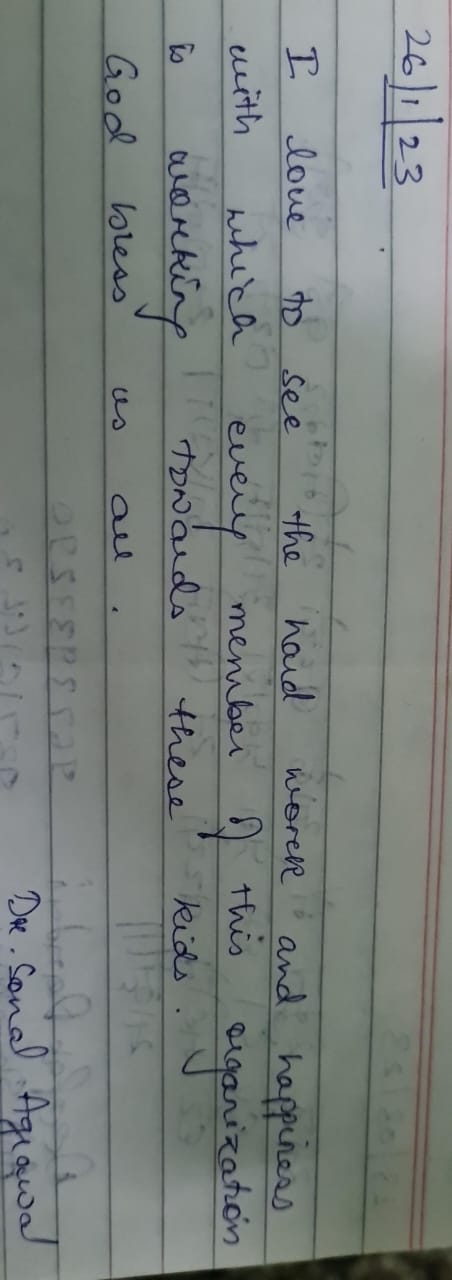 26/1/23
I love to see the hard work and happiness
with which every member of this organization
is working towards these kids.
God bless us all.
Dr. Sonal Agrawal